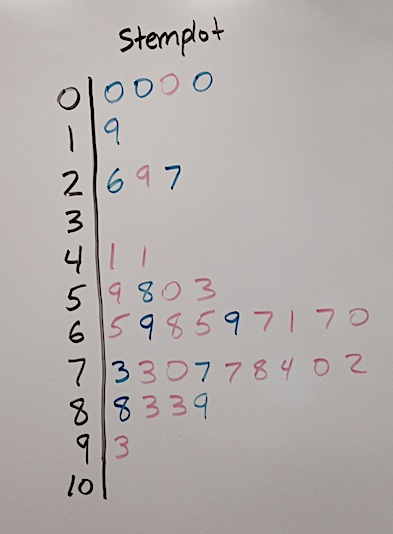 Stemplot
0 | 0 0 0 0
1 | 9
2 | 6 9 7
3 |
4 | 1 1
5 | 9 8 0 3
6 | 5 9 8 5 9 7 1 7 0
7 | 3 3 0 7 7 8 4 0 2
8 | 8 3 3 9
9 | 3
10 |